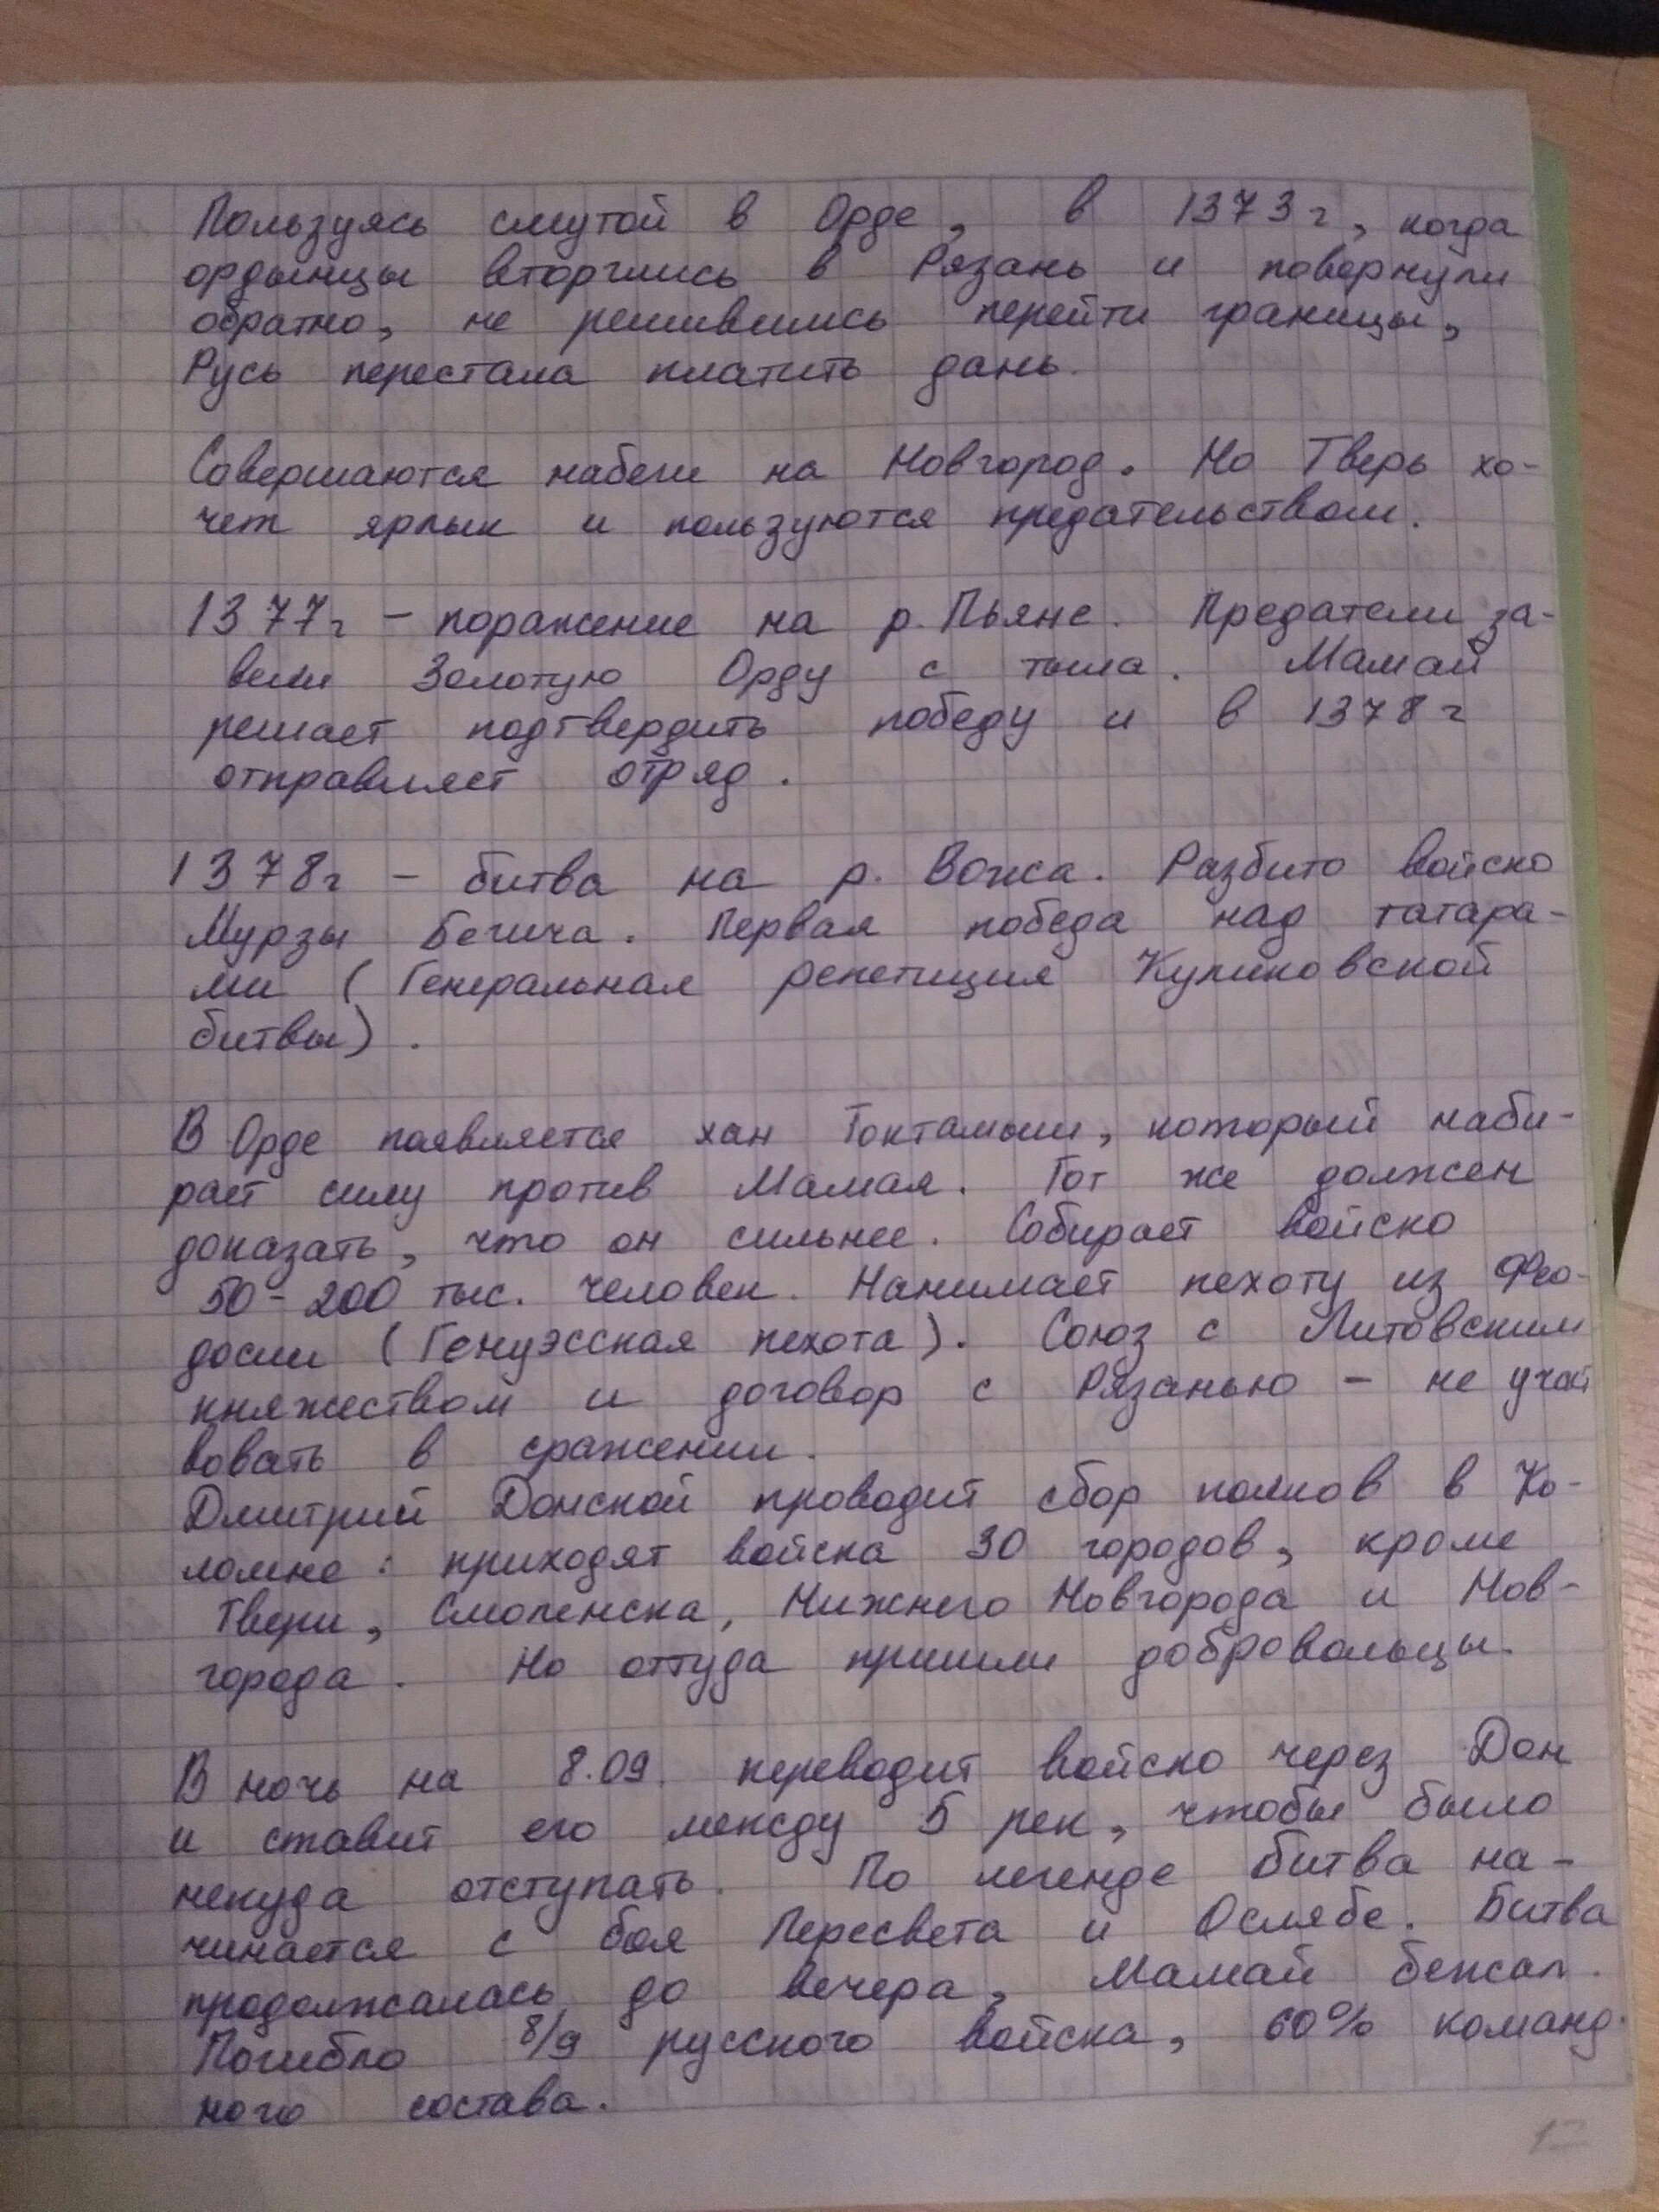 Пользуясь смутой в Орде, в 1373г, когда
ордынцы вторглись в Рязань и повернули
обратно, не решившись перейти границы,
Русь перестала платить дань.
Совершаются набеги на Новгород. Но Тверь хо-
чет ярлык и пользуются предательством.
1377г - поражение на р. Пьяне. Предатели за-
вели Золотую Орду с тыла. Мамай
решает подтвердить победу и в 1378г
отправляет отряд.
1378г - битва на р. Вожа. Разбито войско
Мурзы Бегича. Первая победа над татара-
ми (Генеральная репетиция Куликовской
битвы).
В Орде появляется хан Тохтамыш, который наби-
рает силу против Мамая. Тот же должен
доказать, что он сильнее. Собирает войско
50-200 тыс. человек. Нанимает пехоту из Фео-
досии (Генуэсская пехота). Союз с Литовским
княжеством и договор с Рязанью - не участ
вовать в сражении.
Дмитрий Донской проводит сбор полков в Ко-
ломне: приходят войска 30 городов, кроме
Твери, Смоленска, Нижнего Новгорода и Нов-
города. Но оттуда пришли добровольцы.
В ночь на 8.09. переводит войско через Дон
и ставит его между 5 рек, чтобы было
некуда отступать. По легенде битва на-
чинается с боя Пересвета и Ослябе. Битва
продолжалась до вечера, Мамай бежал.
Погибло 8/9 русского войска, 60% команд-
ного состава.